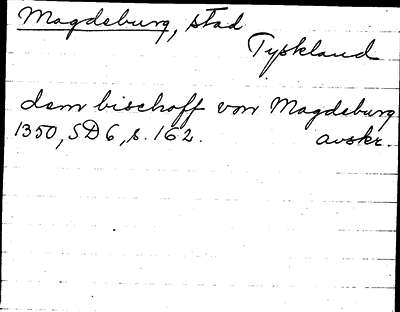 Magdeburg, stad
Tyskland
dem bischoff von Magdeburg
1350, SD6, s. 162. avskr.